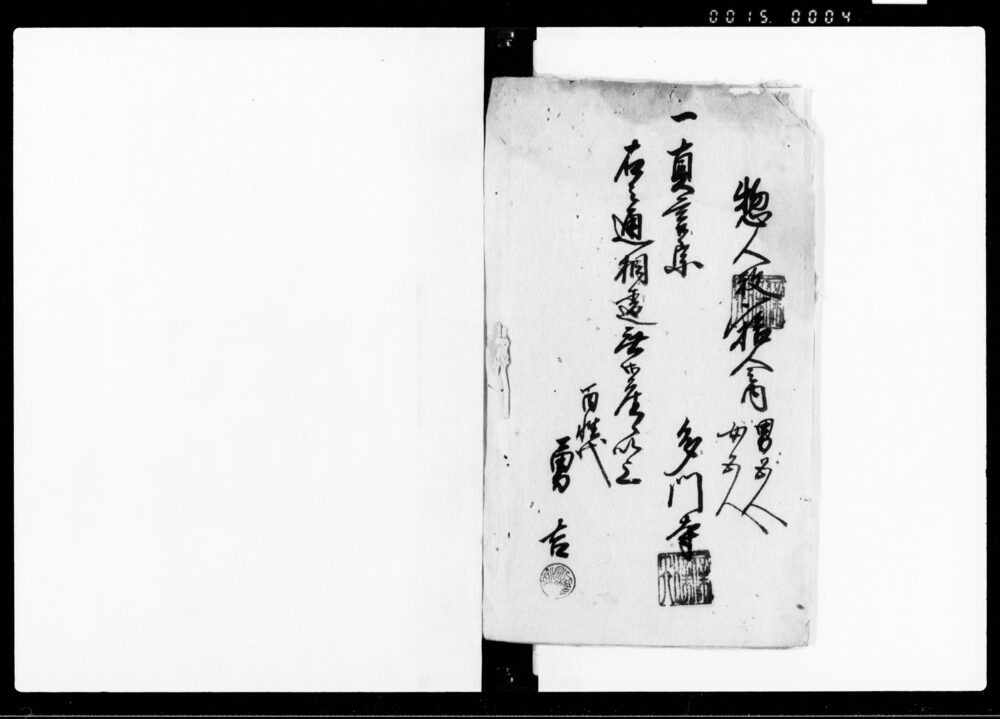 0015. 0004
惣人数拾人内
男五人
女五人
一真言宗 多門寺
右之通相違無御座候以上
百姓代
勇吉